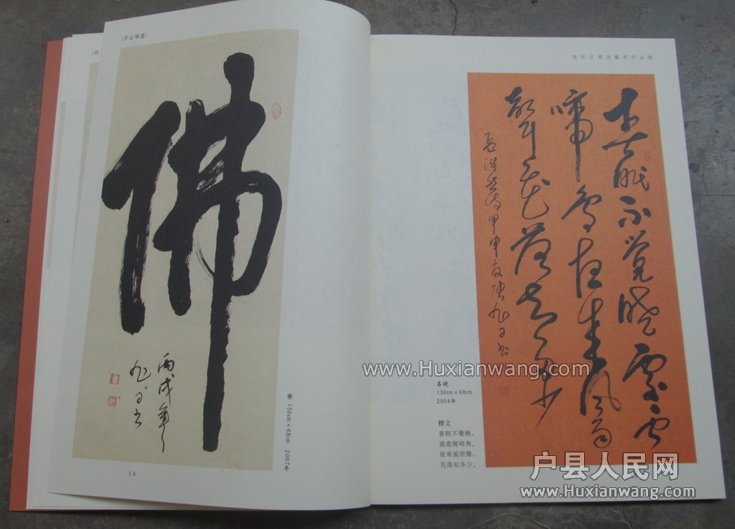 佛
丙戌年
佛 136cm×68cm 2007年
14
春眠不觉晓处处闻
啼鸟夜来风雨
声花落知多少
孟浩然诗甲申夏
春曉
136cm×68cm
2004年
釋文
春眠不覺曉,
處處聞啼鳥。
夜來風雨聲,
花落知多少。
www.Huxianwang.com
户县人民网
www.Huxianwang.com